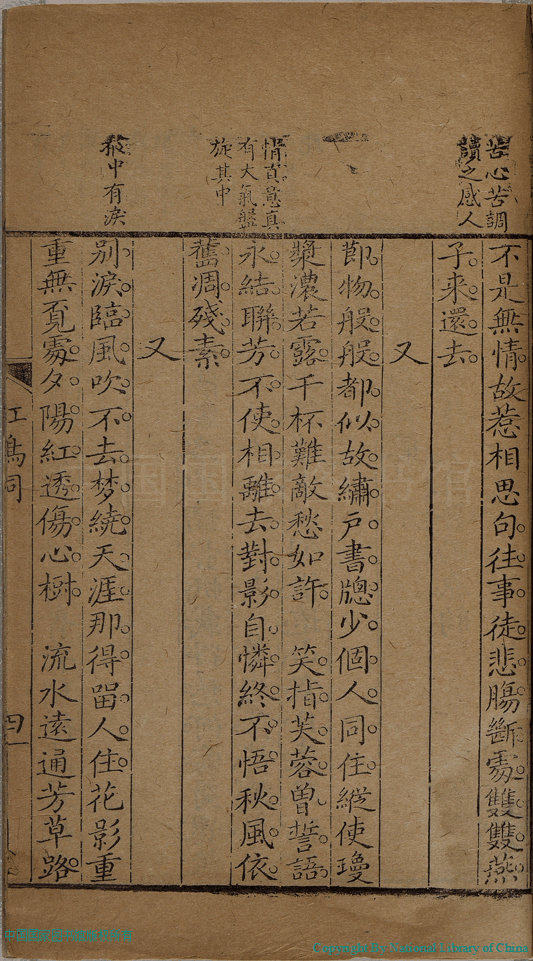 苦心苦調
讀之感人
情真意真
有大氣盤
旋其中
報中有淚
不是無情故惹相思句往事徒悲腸斷處雙雙燕
子來還去
又
節物般般都似故繡戶書牕少個人同住縱使瓊
漿濃若露千杯難敵愁如許　笑指芙蓉曾誓語
永結聯芳不使相離去對影自憐終不悟秋風依
舊凋殘素
又
別淚臨風吹不去梦繞天涯那得畱人住花影重
重無覓處夕陽紅透傷心樹　流水遠通芳草路
四
Copyright by National Library of China